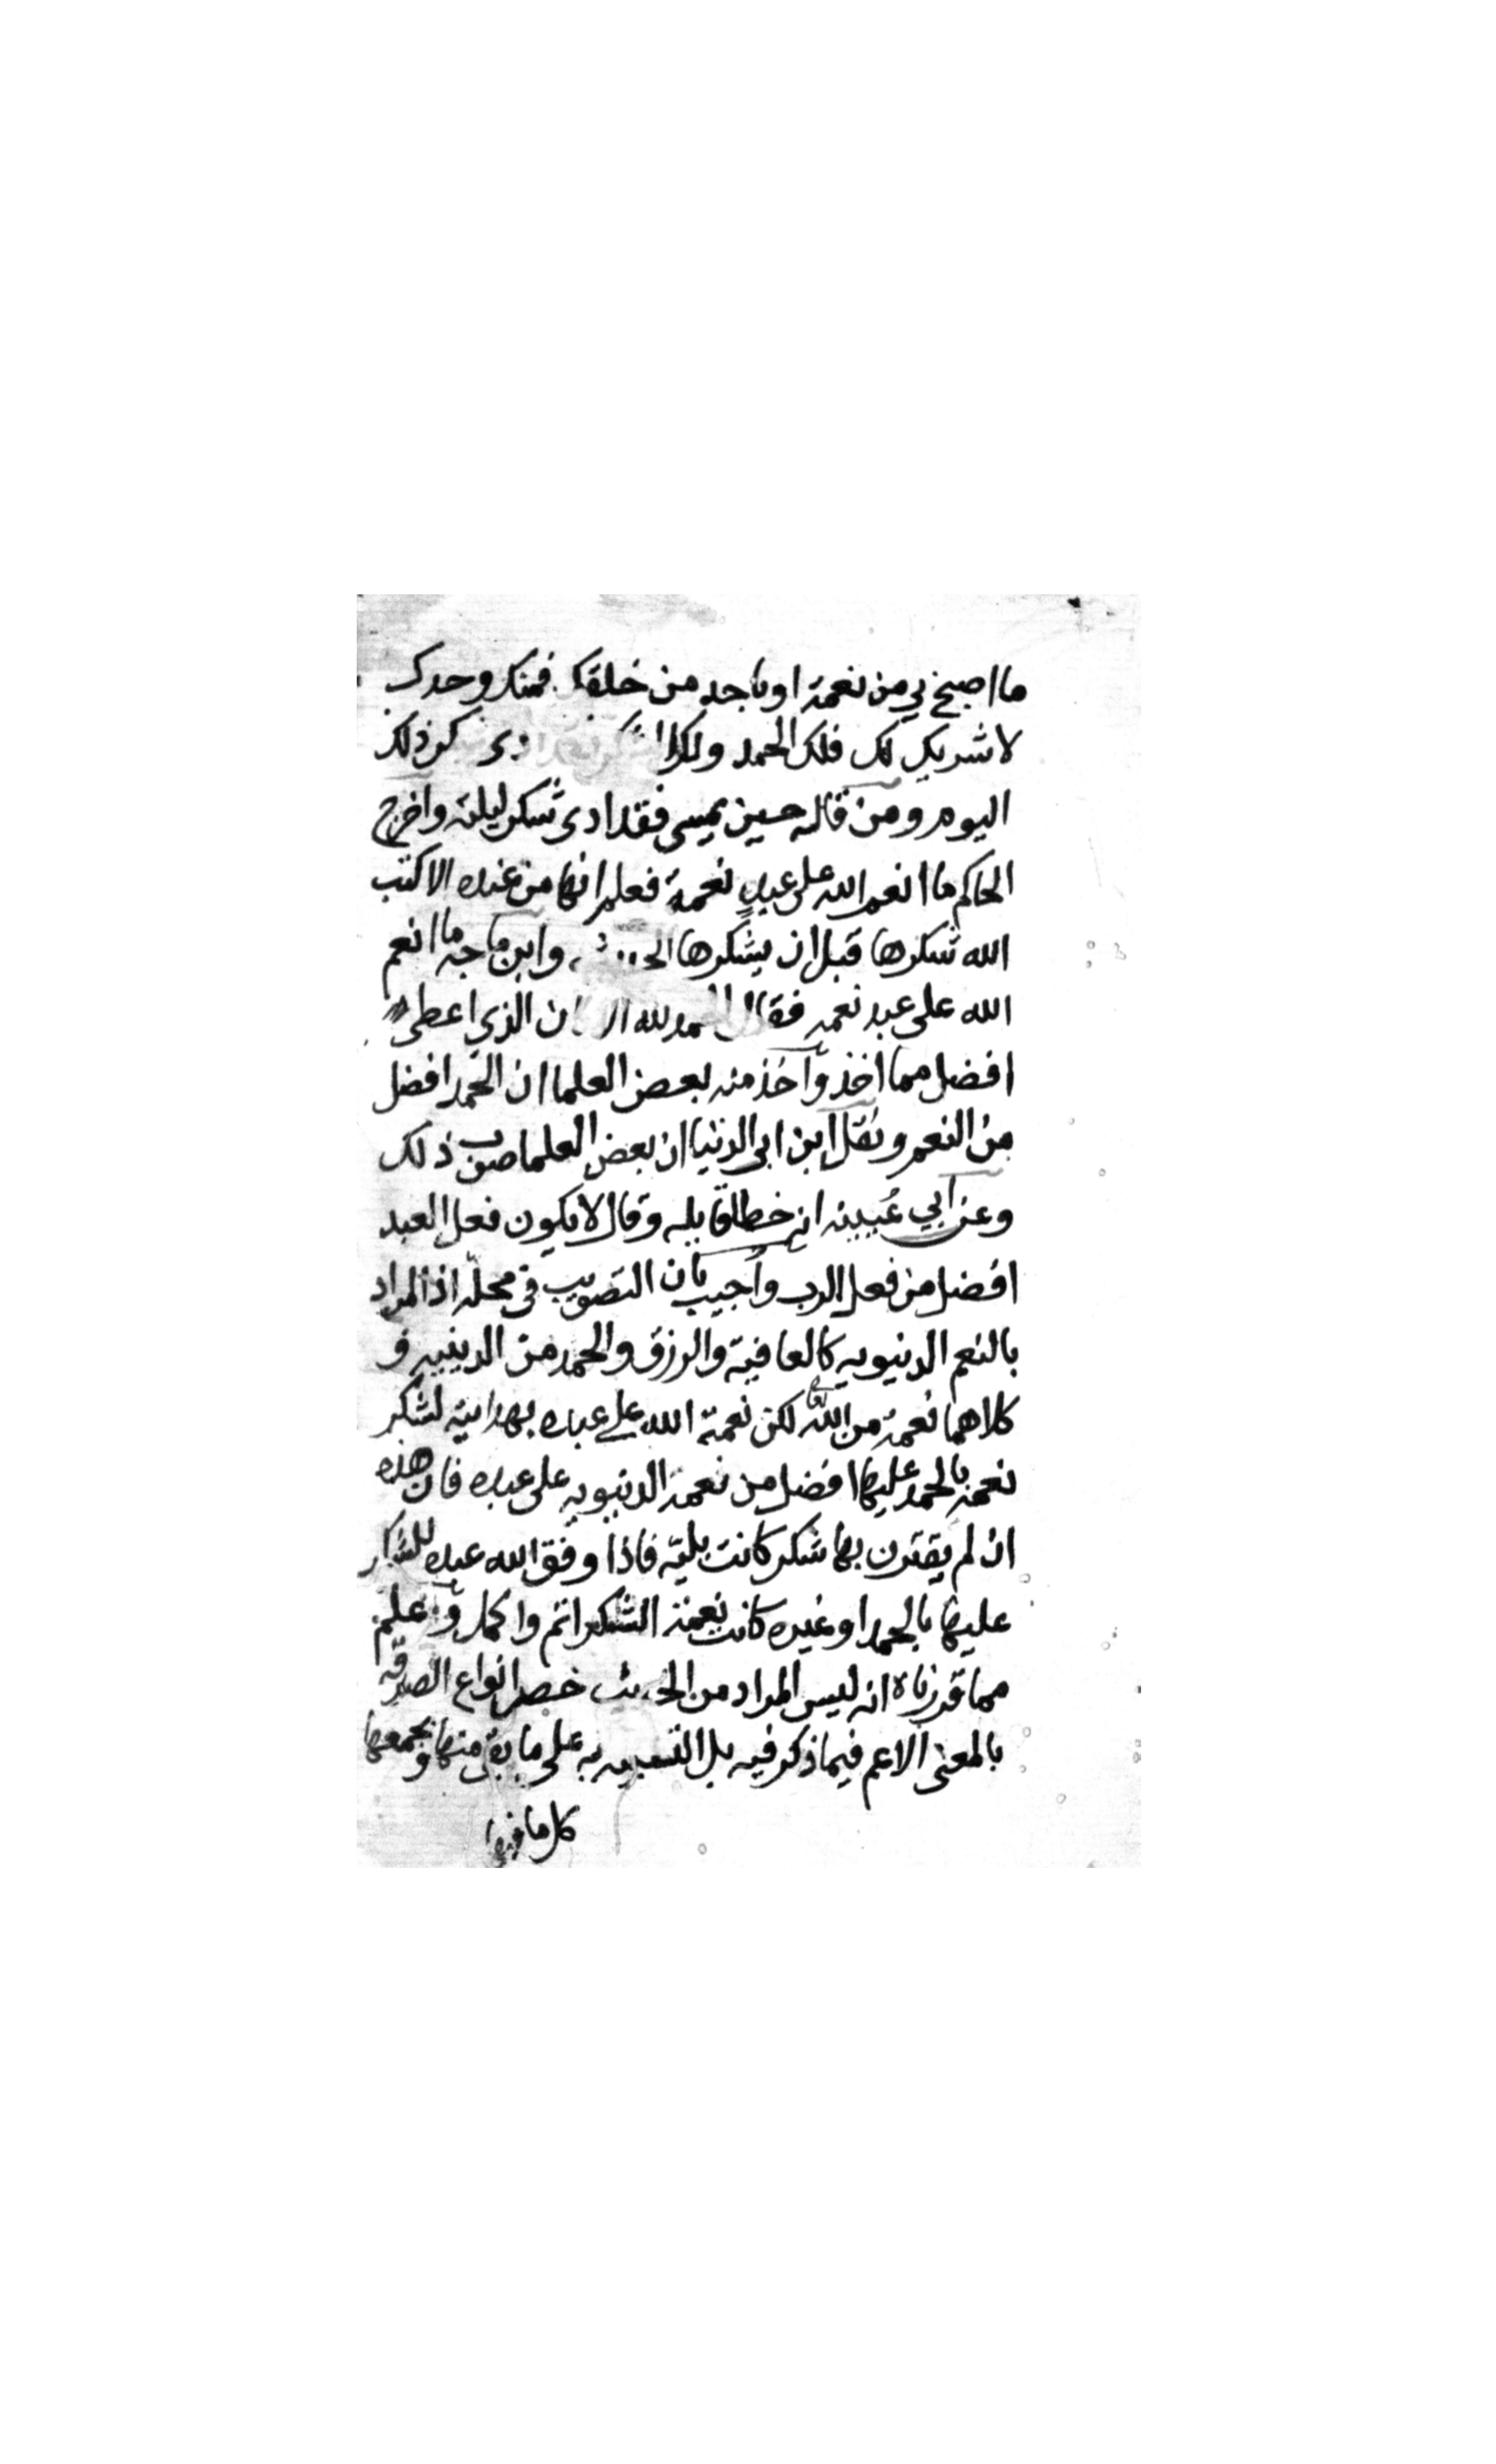 ما اصبح بي من نعمة او باحد من خلقك فمنك وحدك
لا شريك لك فلك الحمد ولك الشكر فقد ادى شكر ذلك
اليوم ومن قاله حين يمسي فقد ادى شكر ليلته واخرج
الحاكم ما انعم الله على عبد نعمة فعلم انها من عنده الا كتب
الله شكرها قبل ان يشكرها وابن ماجه ما انعم
الله على عبد نعمه فقال الحمد لله الا كان الذي اعطى
افضل مما اخذ واخذ منه بعض العلما ان الحمد افضل
من النعم ونقل ابن ابي الدنيا ان بعض العلما صوب ذلك
وعن ابي عُيينه انه خطا قايله وقال لا يكون فعل العبد
افضل من فعل الرب واجيب بان التصويب في محله اذ المراد
بالنعم الدنيويه كالعافية والرزق والحمد من الدينيه و
كلاهما نعمة من الله لكن نعمة الله على عبده بهدايته لشكر
نعمه بالحمد عليها افضل من نعمه الدنيويه على عبده فان هذه
ان لم يقترن بها شكر كانت بليّه فاذا وفق الله عبده للشكر
عليها بالحمد او غيره كانت نعمة الشكر اتم واكمل وعلم
مما قررناه انه ليس المراد من الحديث حصر انواع الصدقه
بالمعنى الاعم فيما ذكر فيه بل التنبيه به على ما بقي منها ويجمعها
كل ما